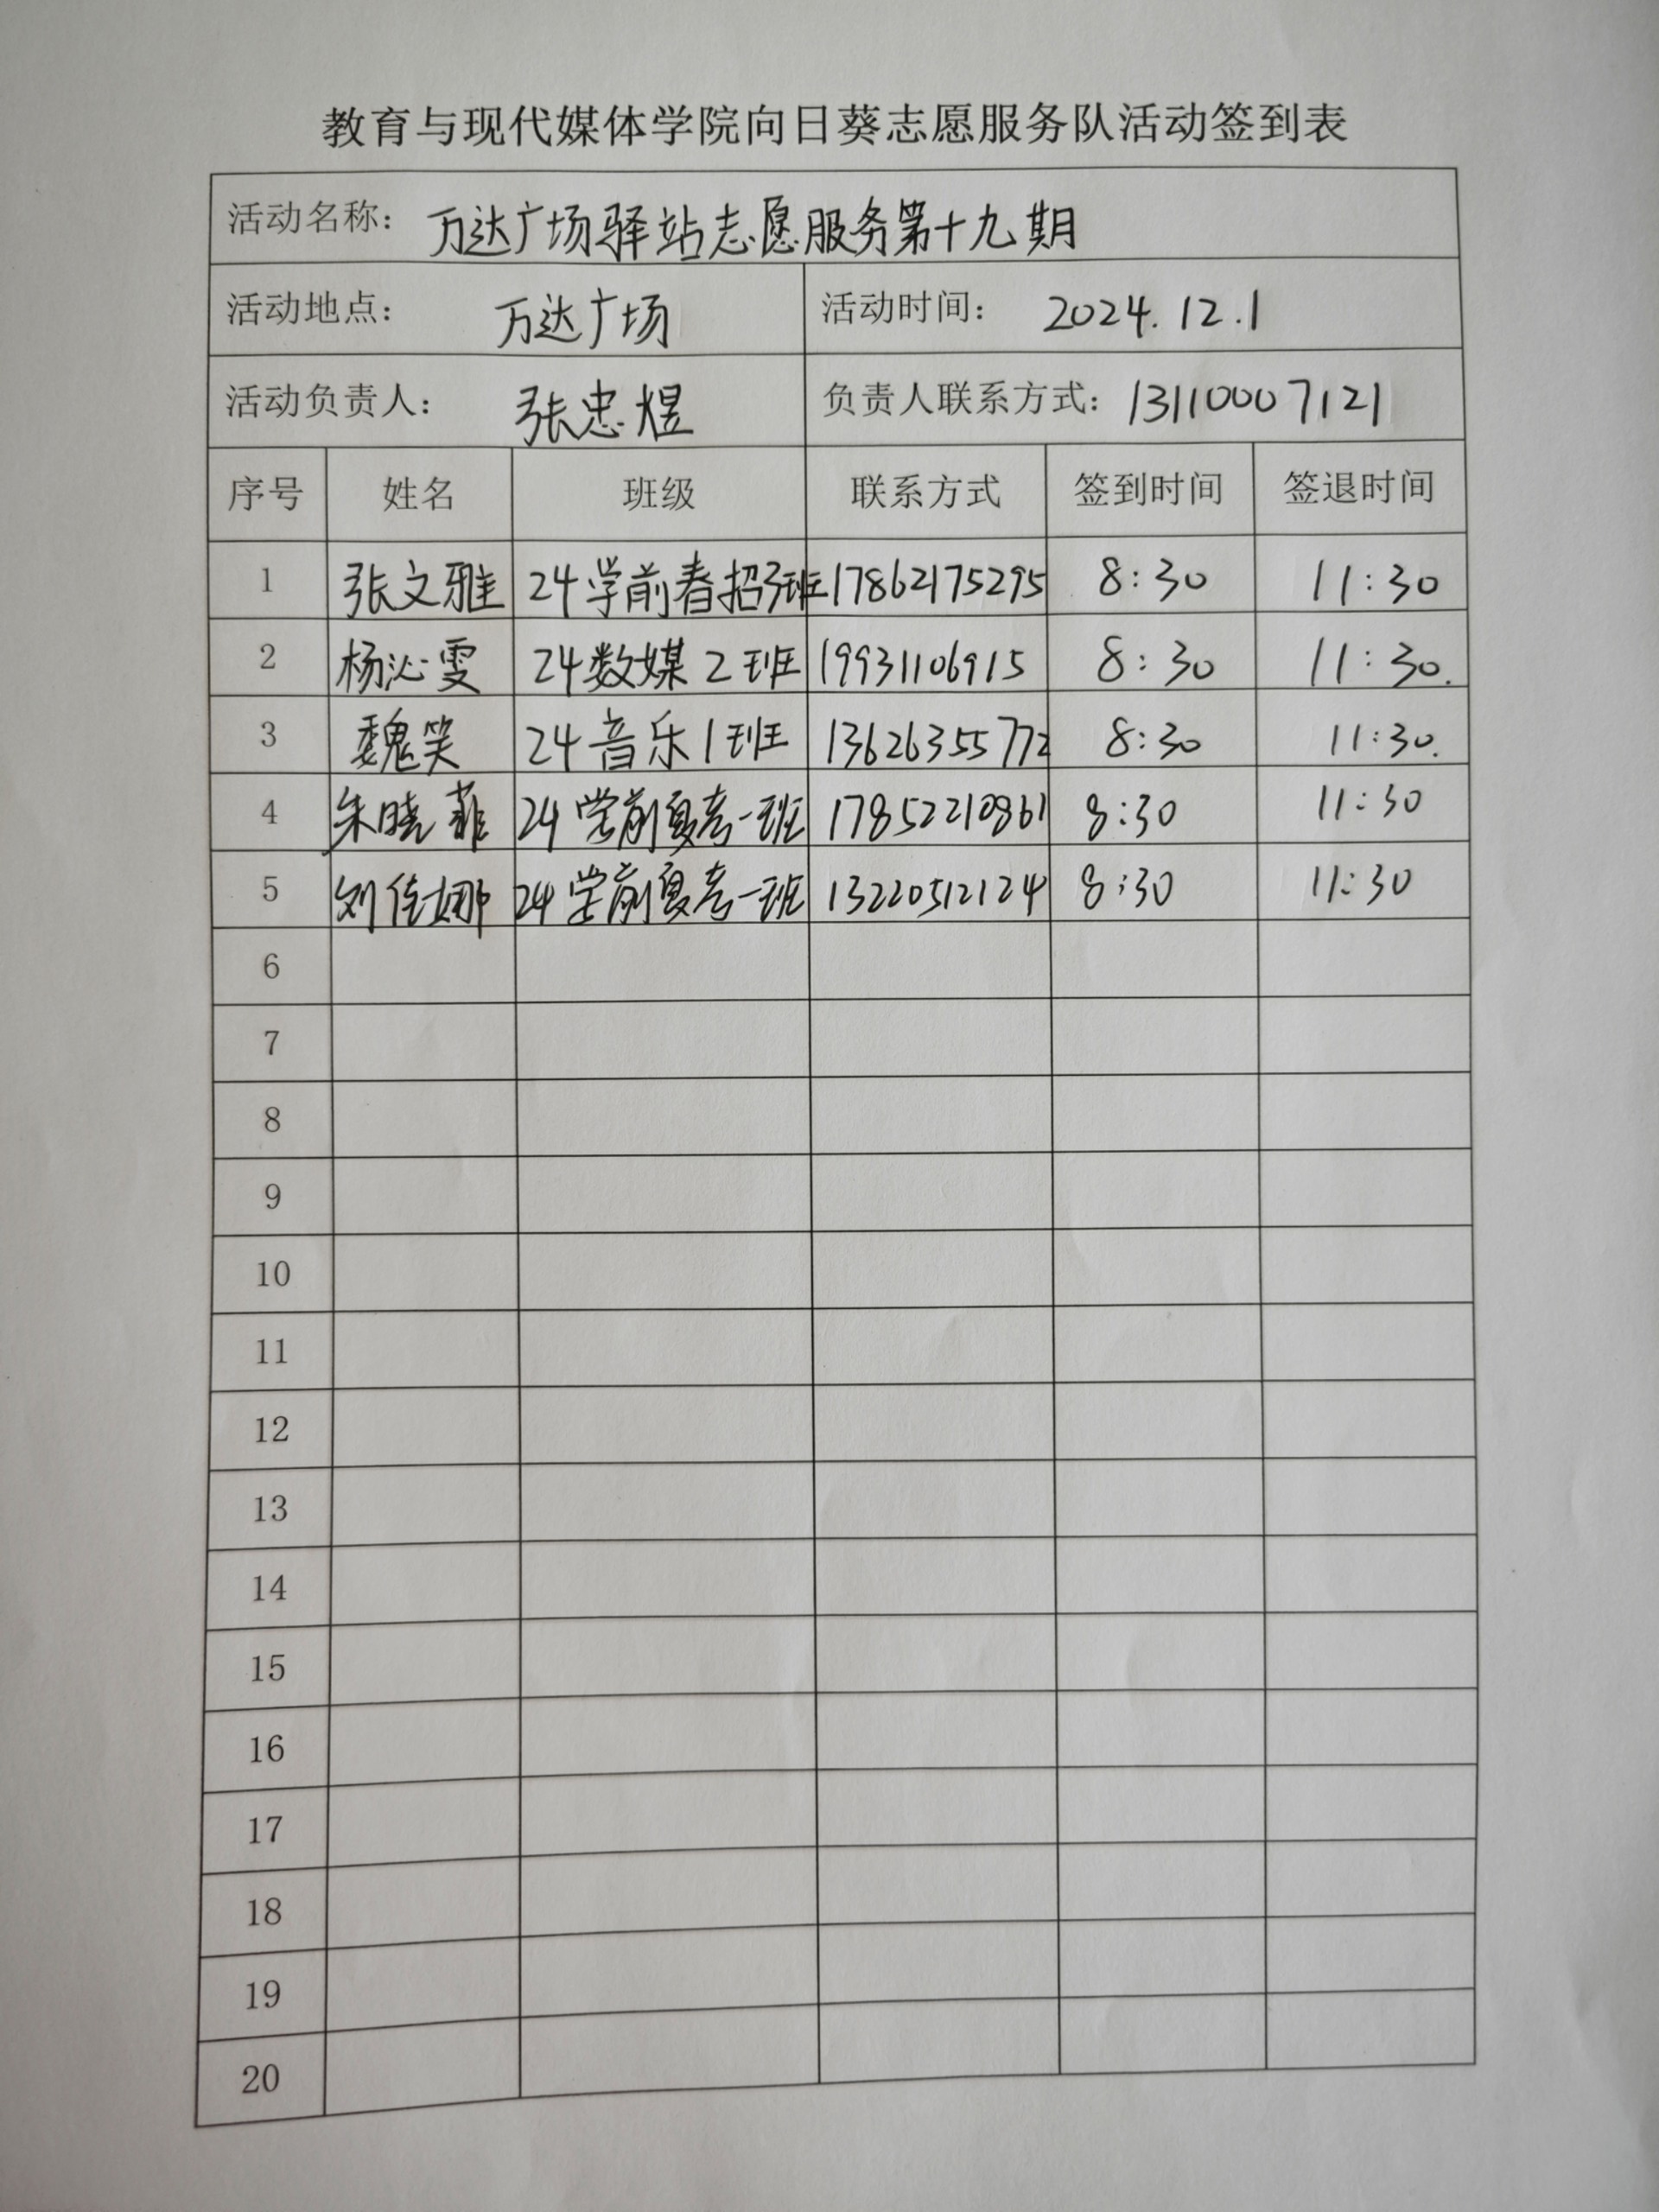 教育与现代媒体学院向日葵志愿服务队活动签到表
活动名称: 万达广场驿站志愿服务第十九期
活动地点: 万达广场 活动时间: 2024.12.1
活动负责人: 张忠煜 负责人联系方式: 13110007121
序号 姓名 班级 联系方式 签到时间 签退时间
1 张文雅 24学前春招3班 17862175295 8:30 11:30
2 杨沁雯 24数媒2班 19931106915 8:30 11:30.
3 魏笑 24音乐1班 13626355772 8:30 11:30.
4 朱晓菲 24学前夏考一班 17852210861 8:30 11:30
5 刘佳娜 24学前夏考一班 13220512124 8:30 11:30
6
7
8
9
10
11
12
13
14
15
16
17
18
19
20